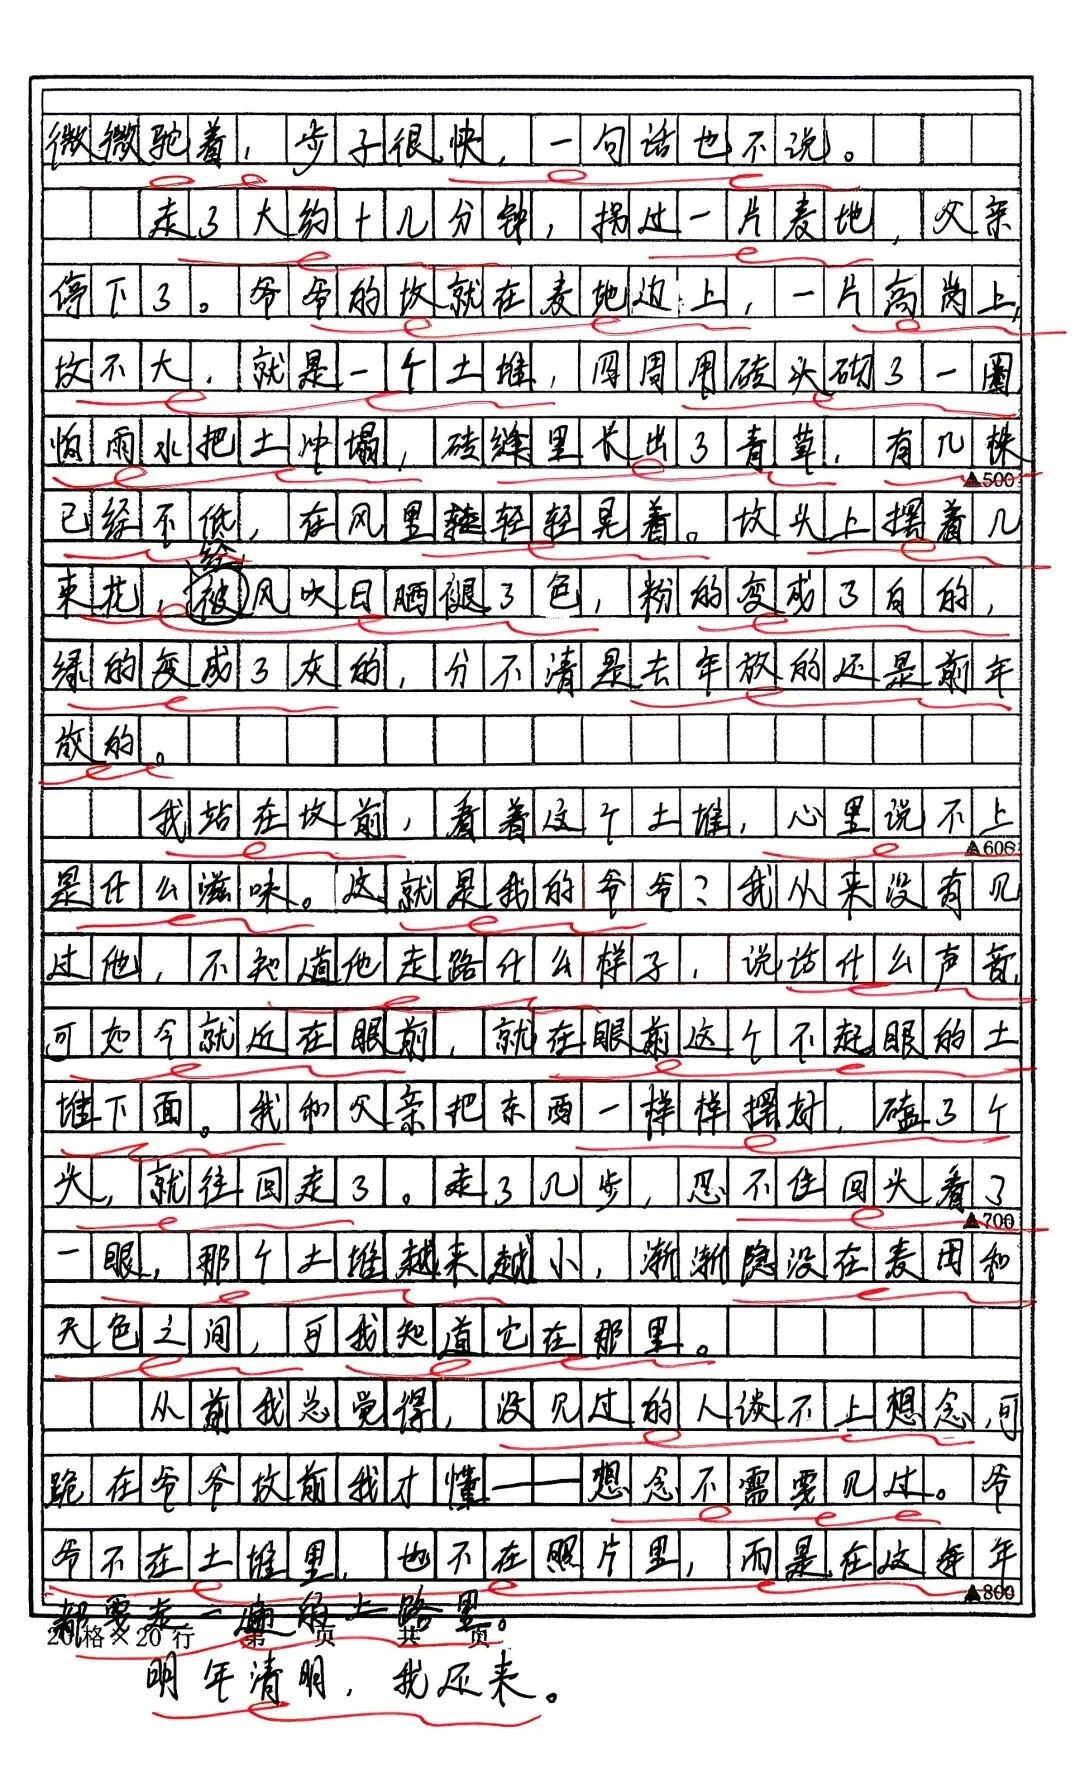 微微驼着，步子很快，一句话也不说。
走了大约十几分钟，拐过一片麦地，父亲
停下了。爷爷的坟就在麦地边上，一片高岗上，
坟不大，就是一个土堆，四周用砖头砌了一圈
怕雨水把土冲塌，砖缝里长出了青草，有几株
已经不低，在风里轻轻晃着。坟头上摆着几
给
束花，被风吹日晒褪了色，粉的变成了白的，
绿的变成了灰的，分不清是去年放的还是前年
放的。
我站在坟前，看着这个土堆，心里说不上
▲600
▲500
是什么滋味。这就是我的爷爷？我从来没有见
过他，不知道他走路什么样子，说话什么声音，
可如今就近在眼前，就在眼前这个不起眼的土
堆下面。我和父亲把东西一样样摆好，磕了个
头，就往回走了。走了几步，忍不住回头看了
▲700
一眼，那个土堆越来越小，渐渐隐没在麦田和
天色之间，可我知道它在那里。
从前我总觉得，没见过的人谈不上想念，可
跪在爷爷坟前我才懂——想念不需要见过。爷
爷不在土堆里，也不在照片里，而是在这每年
▲800
都要走一遍的上路里。
20格×20行 第 页 共 页
明年清明，我还来。